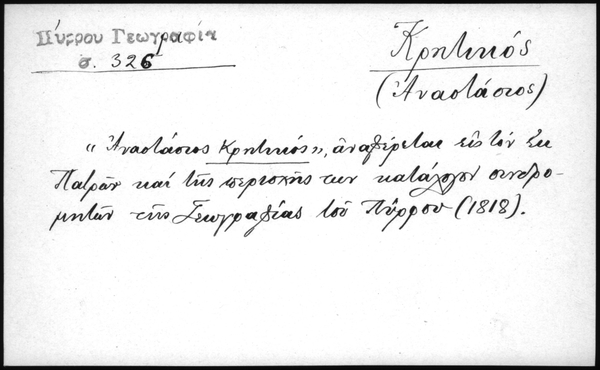 Πύρρου Γεωγραφία
σ. 326
Κρητικός
(Ἀναστάσιος)
"Ἀναστάσιος Κρητικός", ἀναφέρεται εἰς τόν ἐκ
Πατρῶν καί τῆς περιοχῆς των κατάλογον συνδρο-
μητῶν τῆς Γεωγραφίας τοῦ Πύρρου (1818).